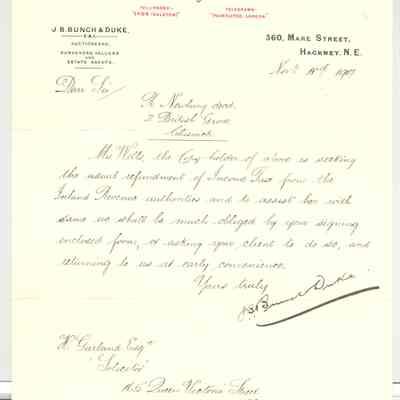 TELEPHONE:-
TELEGRAMS:-
J. B. BUNCH & DUKE,
F.A.I.
AUCTIONEERS,
SURVEYORS, VALUERS
AND
ESTATE AGENTS.
360, MARE STREET,
HACKNEY, N.E.
Nov.
Dear Sir/
Newbury decd.
2 British Grove
Chiswick
Mr Wells, the Copy holder of above is seeking
the usual refundment of Income Tax from the
Inland Revenue authorities and to assist him with
same we shall be much obliged by your signing
enclosed form, or asking your client to do so, and
returning to us at early convenience.
Yours truly
J.B. Bunch & Duke
Garland Esqre
Solicitor
165 Queen Victoria Street